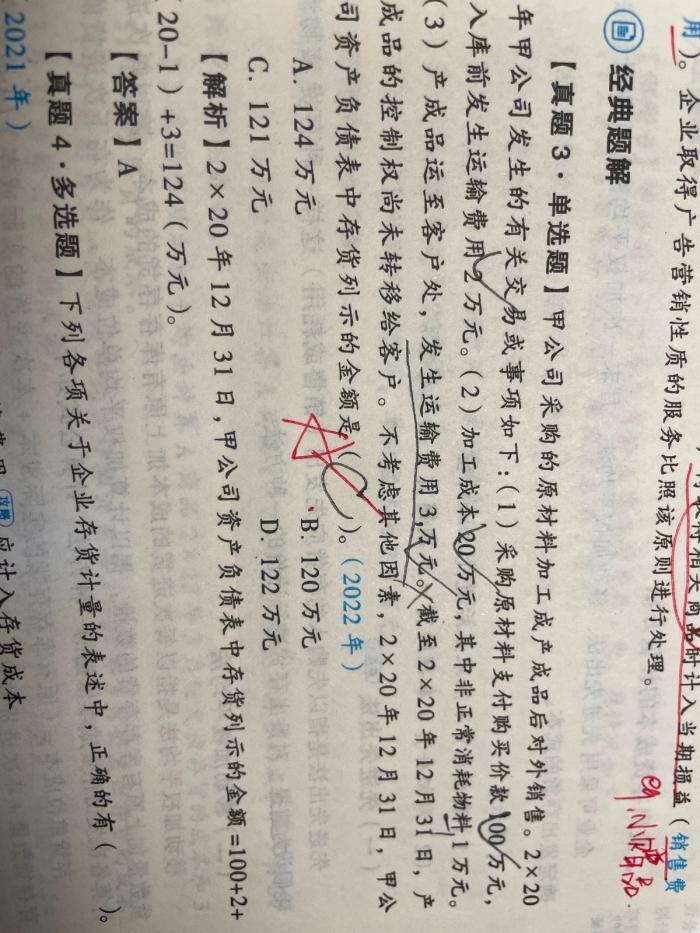 取得相关商品时计入当期损益（销售费
用）。企业取得广告营销性质的服务比照该原则进行处理。
eg.小赠品
经典题解
【真题3·单选题】甲公司采购的原材料加工成产成品后对外销售。2×20
年甲公司发生的有关交易或事项如下：（1）采购原材料支付购买价款100万元，
入库前发生运输费用2万元。（2）加工成本20万元，其中非正常消耗物料1万元。
（3）产成品运至客户处，发生运输费用3万元。截至2×20年12月31日，产
成品的控制权尚未转移给客户。不考虑其他因素，2×20年12月31日，甲公
司资产负债表中存货列示的金额是（ ）。（2022年）
A. 124万元 B. 120万元
C. 121万元 D. 122万元
【解析】2×20年12月31日，甲公司资产负债表中存货列示的金额=100+2+
（20-1）+3=124（万元）。
【答案】A
【真题4·多选题】下列各项关于企业存货计量的表述中，正确的有（ ）。
（2021年）
应计入存货成本